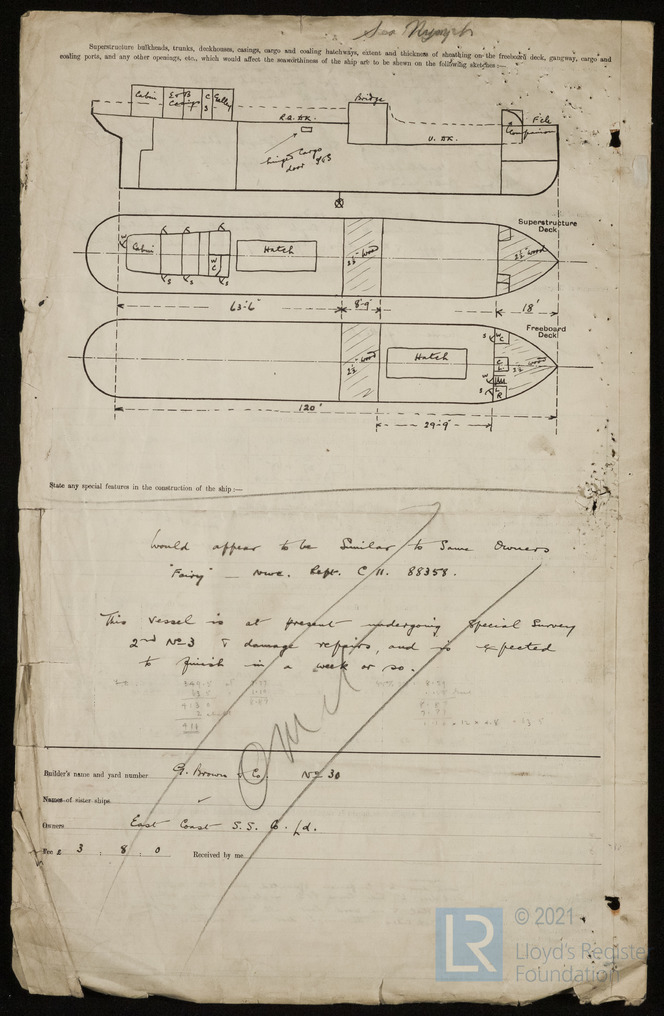 Sea Nymph
Superstructure bulkheads, trunks, deckhouses, casings, cargo and coaling hatchways, extent and thickness of sheathing on the freeboard deck, gangway, cargo and
coaling ports, and any other openings, etc., which would affect the seaworthiness of the ship are to be shewn on the following sketches :—
Cabin E & B Casing C S Galley
Bridge
R.Q. DK.
U. DK.
F'cle
Companion
Cargo
door
Superstructure
Deck
Cabin
W C
Hatch
2½" Wood
2½" Wood
63'-6" 8'-9" 18'
Freeboard
Deck
2½" Wood
Hatch
W C
C L
L R
2½" Wood
120'
29'-9"
State any special features in the construction of the ship :—
Would appear to be Similar to Same Owners
"Fairy" — Nwc. Rept. C 11. 88358.
This vessel is at present undergoing Special Survey
2nd No 3 & damage repairs, and is expected
to finish in a week or so.
Omit
Builder's name and yard number G. Brown & Co. No 30
Names of sister ships
Owners East Coast S.S. Co. Ld.
Fee £ 3 : 8 : 0 Received by me
LR
© 2021
Lloyd's Register
Foundation